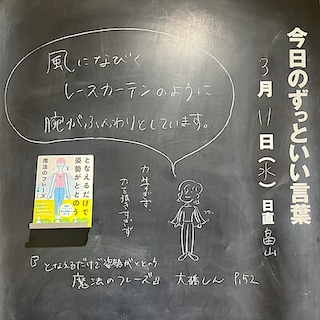 今日のずっといい言葉
3月11日(水)日直 畠山
風になびく
レースカーテンのように
腕がふんわりとしています。
となえるだけで
姿勢がととのう
魔法のフレーズ
力まず
力を抜きすぎず
『となえるだけで姿勢がととのう
魔法のフレーズ』 大橋しん P.52